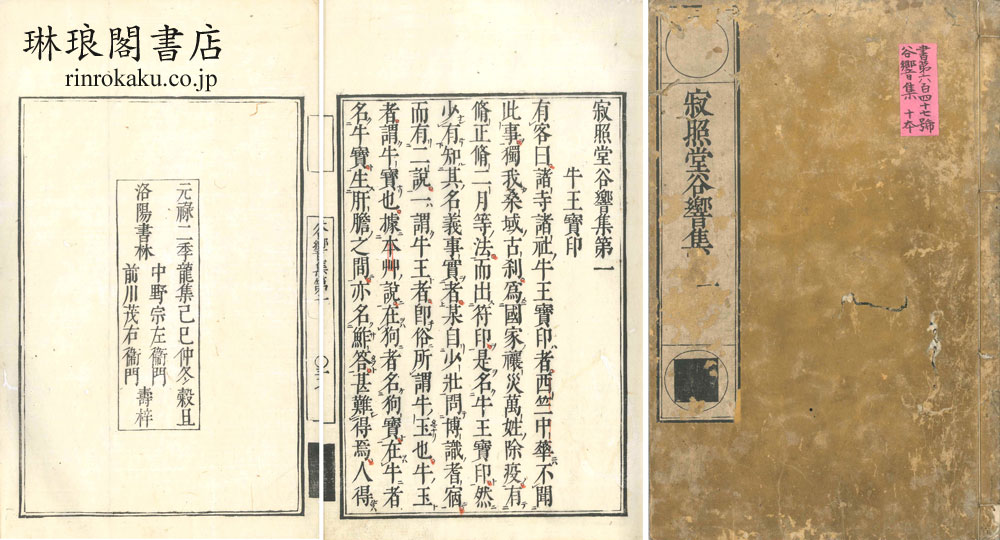 琳琅閣書店
rinrokaku.co.jp
書第六百四十七號
谷響集 十本
寂照堂谷響集 一
寂照堂谷響集第一
牛王寶印
有客曰諸寺諸社牛王寶印者西竺中華不聞
此事獨我桑域古刹爲國家禳災萬姓除疫有
脩正脩二月等法而出符印是名牛王寶印然
少有知其名義事實者某自少壯問博識耆宿
而有二說一謂牛王者卽俗所謂牛玉也牛玉
者謂牛寶也據本艸說在狗者名狗寶在牛者
名牛寶生肝膽之間亦名鮓答甚難得焉人得
谷響集第一
元祿二季龍集己巳仲冬穀旦
洛陽書林
中野宗左衞門
前川茂右衞門
壽梓